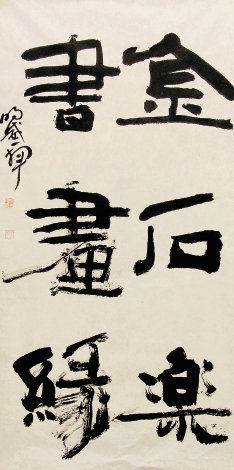 金石樂
書畫緣